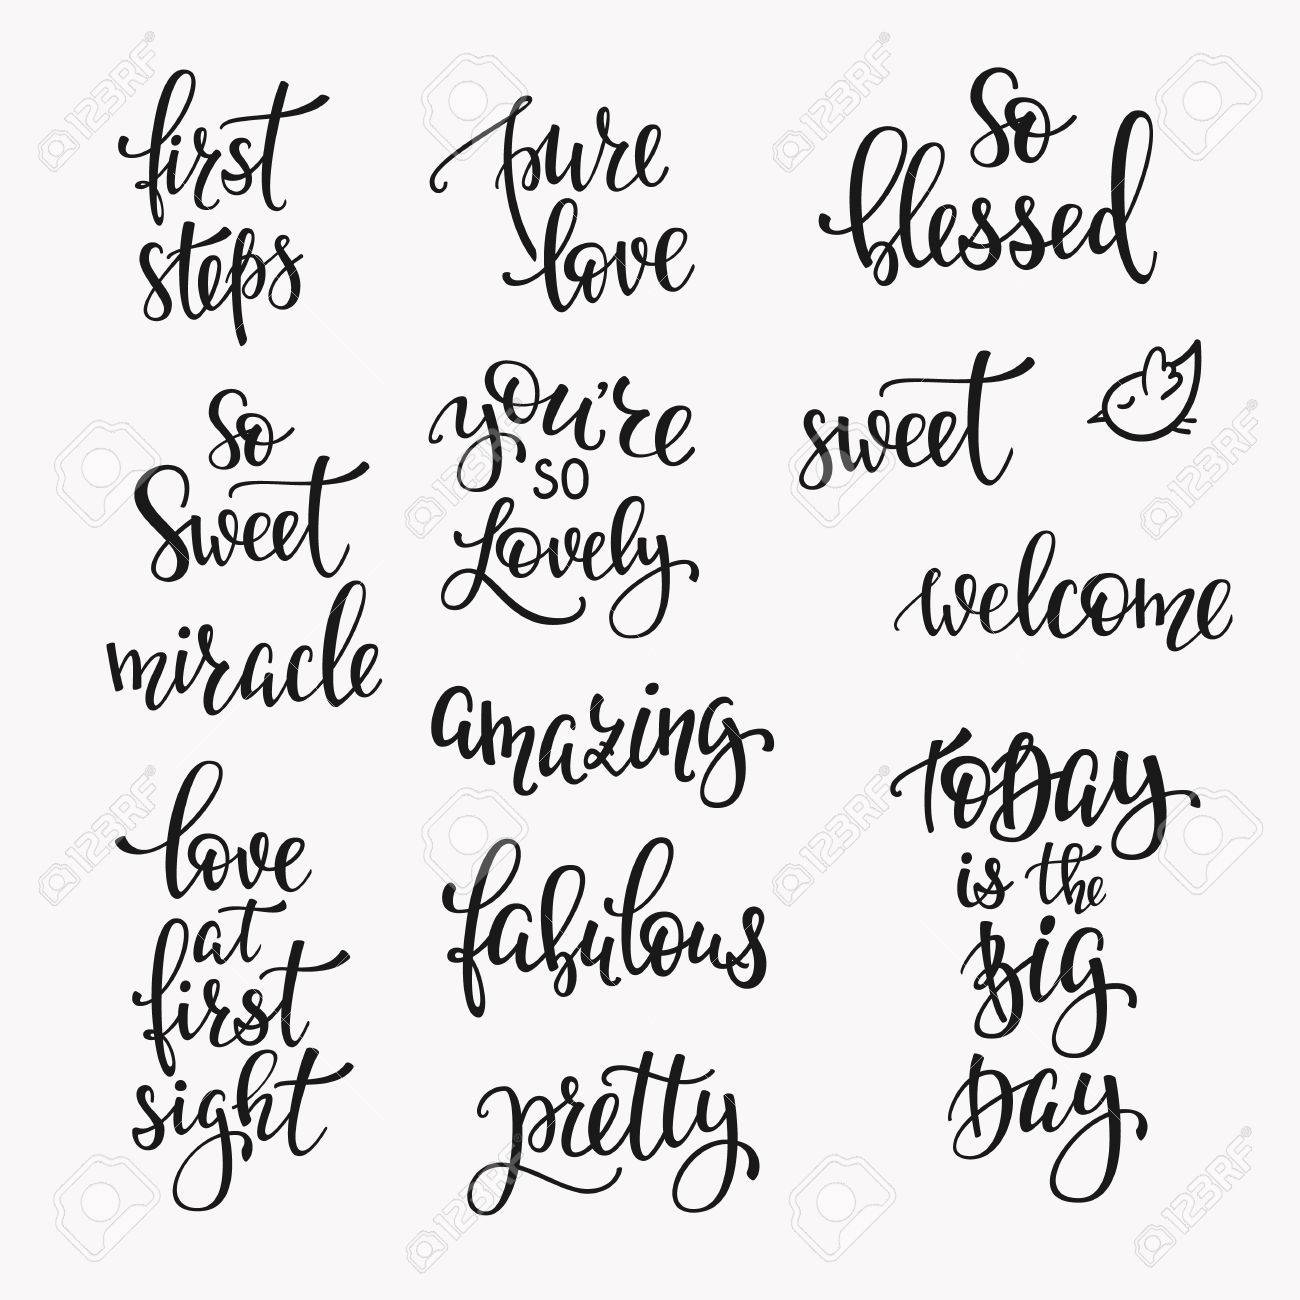 first
steps
so
sweet
miracle
love
at
first
sight
pure
love
you're
so
Lovely
amazing
fabulous
pretty
so
blessed
sweet
welcome
TODAY
is the
BIG
DAY
123RF
123RF
123RF
123RF
123RF
123RF
123RF
123RF